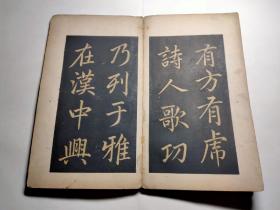 有方有虎
詩人歌功
乃列于雅
在漢中興